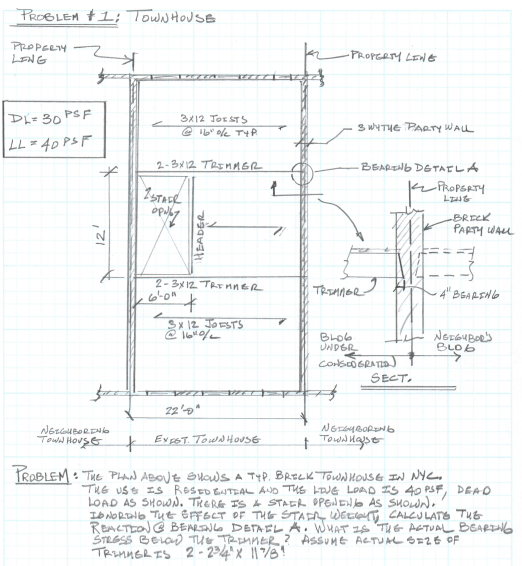 PROBLEM #1: TOWNHOUSE
PROPERTY LINE
PROPERTY LINE
DL = 30 PSF
LL = 40 PSF
3x12 JOISTS
@ 16" O/C TYP.
3 WYTHE PARTY WALL
2-3x12 TRIMMER
BEARING DETAIL A
STAIR
OPNG
HEADER
12'
PROPERTY
LINE
BRICK
PARTY WALL
TRIMMER
4" BEARING
2-3x12 TRIMMER
6'-0"
3x12 JOISTS
@ 16" O/C
BLDG
UNDER
CONSIDERATION
NEIGHBOR'S
BLDG
SECT.
22'-0"
NEIGHBORING
TOWNHOUSE
EXIST. TOWNHOUSE
NEIGHBORING
TOWNHOUSE
PROBLEM: THE PLAN ABOVE SHOWS A TYP. BRICK TOWNHOUSE IN NYC.
THE USE IS RESIDENTIAL AND THE LIVE LOAD IS 40 PSF, DEAD
LOAD AS SHOWN. THERE IS A STAIR OPENING AS SHOWN.
IGNORING THE EFFECT OF THE STAIR WEIGHT, CALCULATE THE
REACTION @ BEARING DETAIL A. WHAT IS THE ACTUAL BEARING
STRESS BELOW THE TRIMMER? ASSUME ACTUAL SIZE OF
TRIMMER IS 2 - 2 3/4" x 11 7/8"!